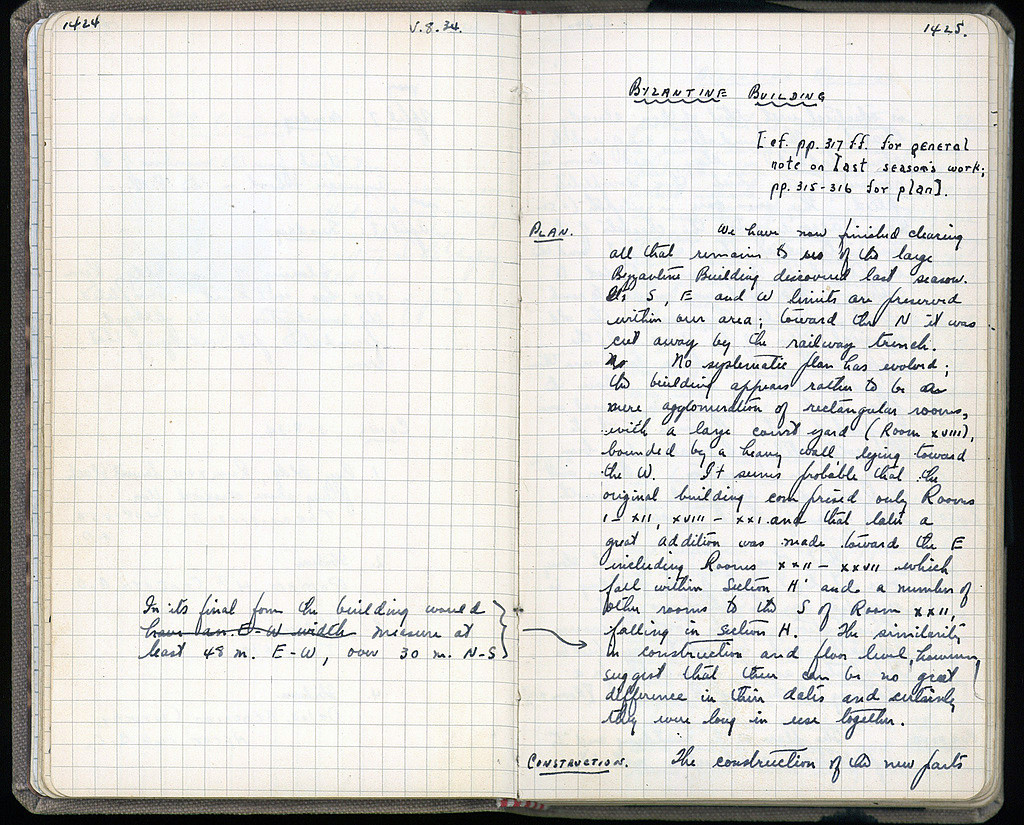 1424
V.8.34.
In its final form the building would
have an E-W width measure at
least 48 m. E-W, over 30 m. N-S
1425.
BYZANTINE BUILDING
[cf. pp. 317 ff. for general
note on last season's work;
pp. 315-316 for plan].
PLAN.
We have now finished clearing
all that remains to us of the large
Byzantine Building discovered last season.
Its S, E and W limits are preserved
within our area; toward the N it was
cut away by the railway trench.
No No systematic plan has evolved;
the building appears rather to be a
mere agglomeration of rectangular rooms,
with a large court yard (Room XVIII),
bounded by a heavy wall lying toward
the W. It seems probable that the
original building comprised only Rooms
I-XII, XVIII-XXI and that later a
great addition was made toward the E
including Rooms XXII-XXVII which
fall within Section H' and a number of
other rooms to the S of Room XXII,
falling in Section H. The similarity
in construction and floor level, however,
suggest that there can be no great
difference in their dates and certainly
they were long in use together.
CONSTRUCTION.
The construction of the new parts